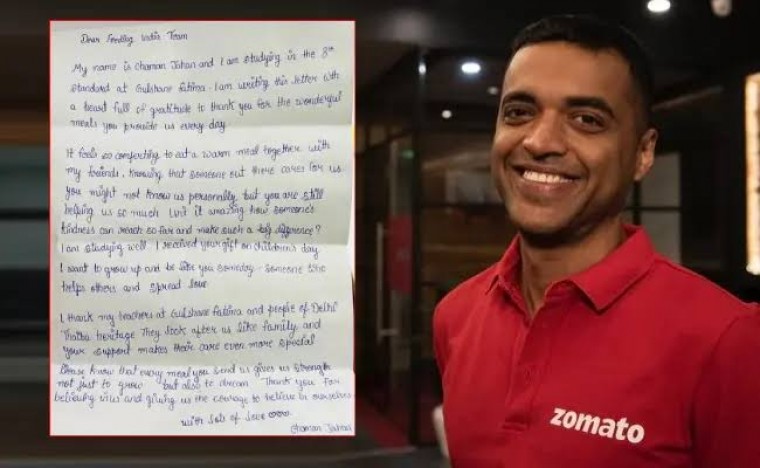 Dear Feeding India Team
My name is Chaman Jahan and I am studying in the 8th
standard at Gulshane Fatima. I am writing this letter with
a heart full of gratitude to thank you for the wonderful
meals you provide us every day
It feels so comforting to eat a warm meal together with
my friends, knowing that someone out there cares for us
you might not know us personally but you are still
helping us so much Isn't it amazing how someone's
kindness can reach so far and make such a big difference?
I am studying well. I received your gift on children's day
I want to grow up and be like you someday - someone who
helps others and spread love
I thank my teachers at Gulshane Fatima and people of Delhi
Thatha heritage They look after us like family and
your support makes their care even more special
Please know that every meal you send us gives us strength
not just to grow but also to dream Thank you for
believing in us and giving us the courage to believe in ourselves
with lots of love
Chaman Jahan
zomato